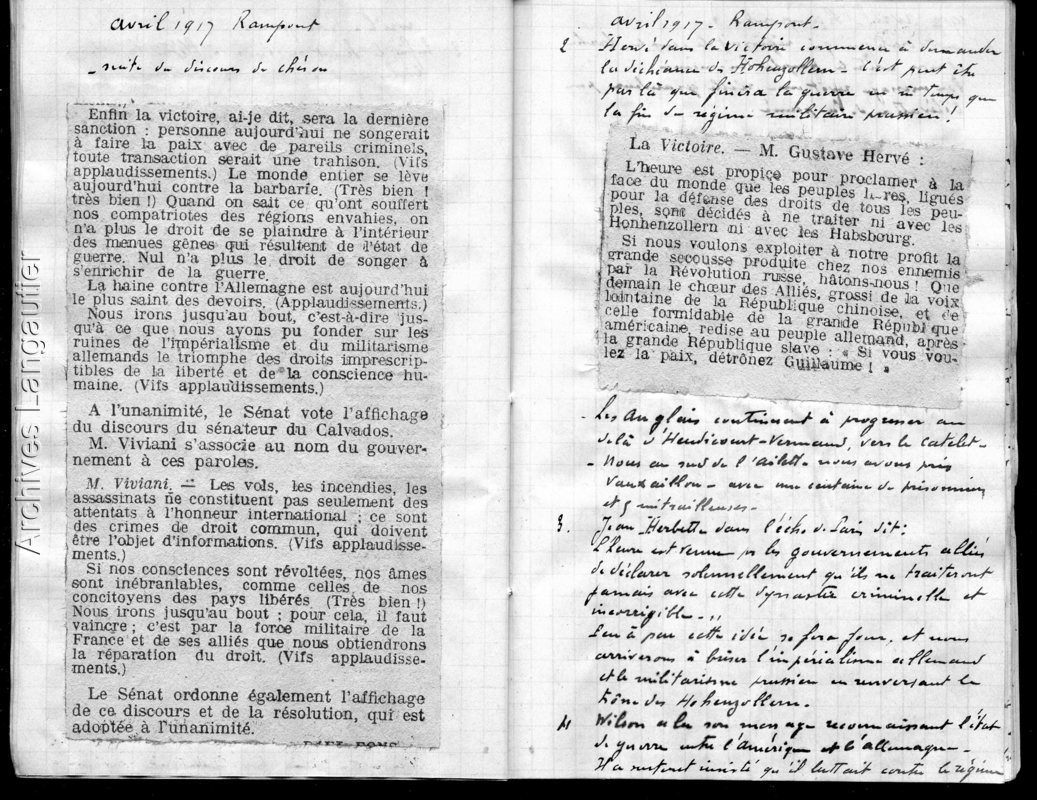 avril 1917 Rampont
- suite du discours de chéron
Enfin la victoire, ai-je dit, sera la dernière
sanction : personne aujourd'hui ne songerait
à faire la paix avec de pareils criminels,
toute transaction serait une trahison. (Vifs
applaudissements.) Le monde entier se lève
aujourd'hui contre la barbarie. (Très bien !
très bien !) Quand on sait ce qu'ont souffert
nos compatriotes des régions envahies, on
n'a plus le droit de se plaindre à l'intérieur
des menues gênes qui résultent de l'état de
guerre. Nul n'a plus le droit de songer à
s'enrichir de la guerre.
La haine contre l'Allemagne est aujourd'hui
le plus saint des devoirs. (Applaudissements.)
Nous irons jusqu'au bout, c'est-à-dire jus-
qu'à ce que nous ayons pu fonder sur les
ruines de l'impérialisme et du militarisme
allemands le triomphe des droits imprescrip-
tibles de la liberté et de la conscience hu-
maine. (Vifs applaudissements.)
A l'unanimité, le Sénat vote l'affichage
du discours du sénateur du Calvados.
M. Viviani s'associe au nom du gouver-
nement à ces paroles.
M. Viviani. — Les vols, les incendies, les
assassinats ne constituent pas seulement des
attentats à l'honneur international ; ce sont
des crimes de droit commun, qui doivent
être l'objet d'informations. (Vifs applaudisse-
ments.)
Si nos consciences sont révoltées, nos âmes
sont inébranlables, comme celles de nos
concitoyens des pays libérés (Très bien !)
Nous irons jusqu'au bout ; pour cela, il faut
vaincre ; c'est par la force militaire de la
France et de ses alliés que nous obtiendrons
la réparation du droit. (Vifs applaudisse-
ments.)
Le Sénat ordonne également l'affichage
de ce discours et de la résolution, qui est
adoptée à l'unanimité.
Archives Langautier
avril 1917 - Rampont -
2 Hervé dans la Victoire commence à demander
la déchéance des Hohenzollern - c'est peut être
par là que finira la guerre en m temps que
la fin du régime militaire prussien !
La Victoire. — M. Gustave Hervé :
L'heure est propice pour proclamer à la
face du monde que les peuples l res, ligués
pour la défense des droits de tous les peu-
ples, sont décidés à ne traiter ni avec les
Honhenzollern ni avec les Habsbourg.
Si nous voulons exploiter à notre profit la
grande secousse produite chez nos ennemis
par la Révolution russe, hâtons-nous ! Que
demain le chœur des Alliés, grossi de la voix
lointaine de la République chinoise, et de
celle formidable de la grande République
américaine, redise au peuple allemand, après
la grande République slave : « Si vous vou-
lez la paix, détrônez Guillaume ! »
- Les Anglais continuent à progresser au
delà d'Heudicourt-Vermand, vers le Catelet -
- Nous au sud de l'Ailette nous avons pris
Vauxaillon - avec une centaine de prisonniers
et 5 mitrailleuses -
3. Jean Herbette dans l'écho de Paris dit :
L'heure est venue pr les gouvernements alliés
de déclarer solennellement qu'ils ne traiteront
jamais avec cette dynastie criminelle et
incorrigible - "
Peu à peu cette idée se fera jour, et nous
arriverons à briser l'impérialisme allemand
et le militarisme prussien en renversant le
trône des Hohenzollern -
4 Wilson a lu son message reconnaissant l'état
de guerre entre l'Amérique et l'allemagne -
Il a surtout insisté qu'il luttait contre le régime